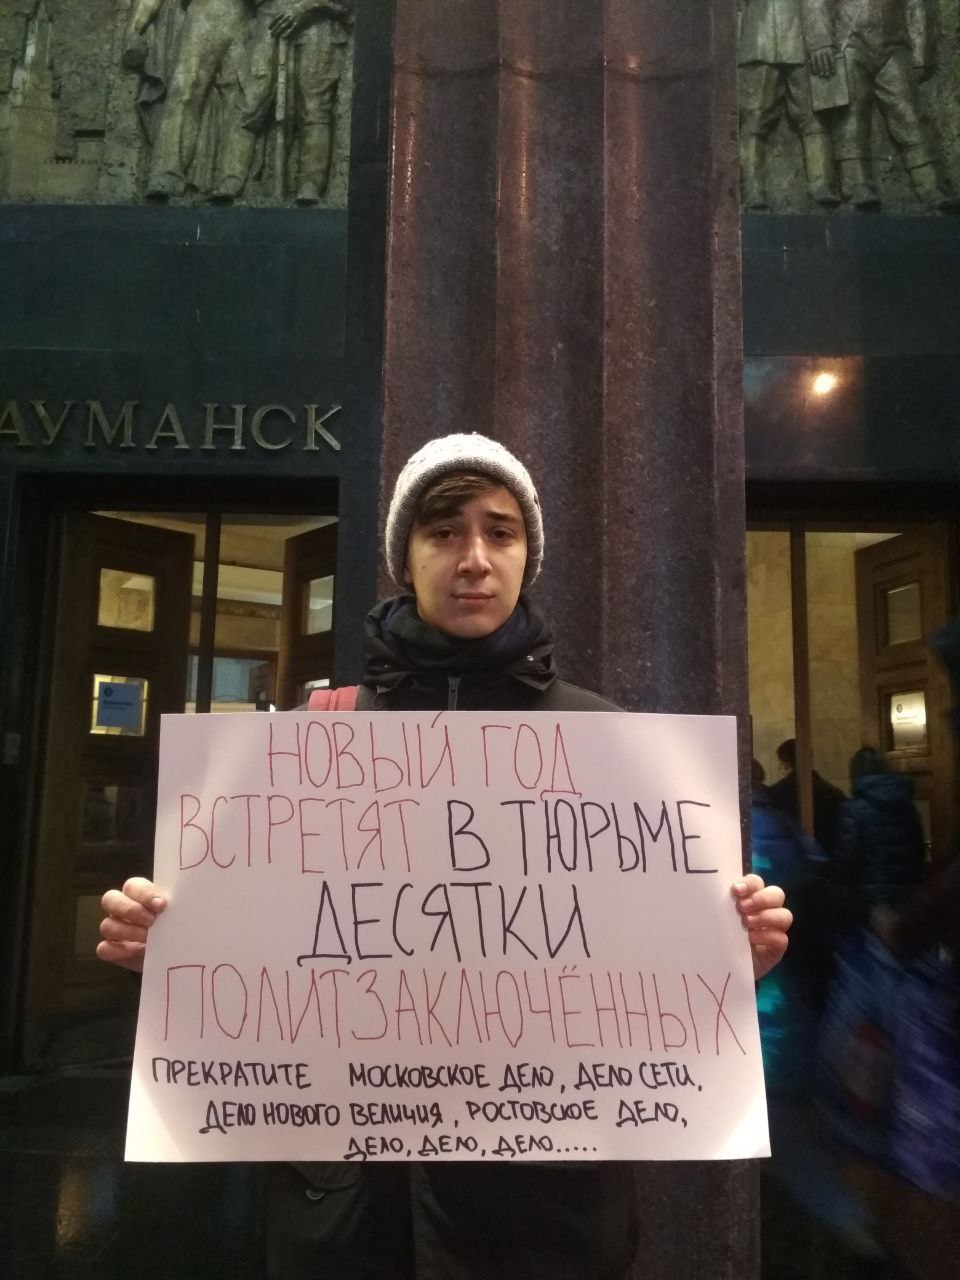 АУМАНСК
НОВЫЙ ГОД
ВСТРЕТЯТ В ТЮРЬМЕ
ДЕСЯТКИ
ПОЛИТЗАКЛЮЧЁННЫХ
ПРЕКРАТИТЕ МОСКОВСКОЕ ДЕЛО, ДЕЛО СЕТИ,
ДЕЛО НОВОГО ВЕЛИЧИЯ, РОСТОВСКОЕ ДЕЛО,
ДЕЛО, ДЕЛО, ДЕЛО.....